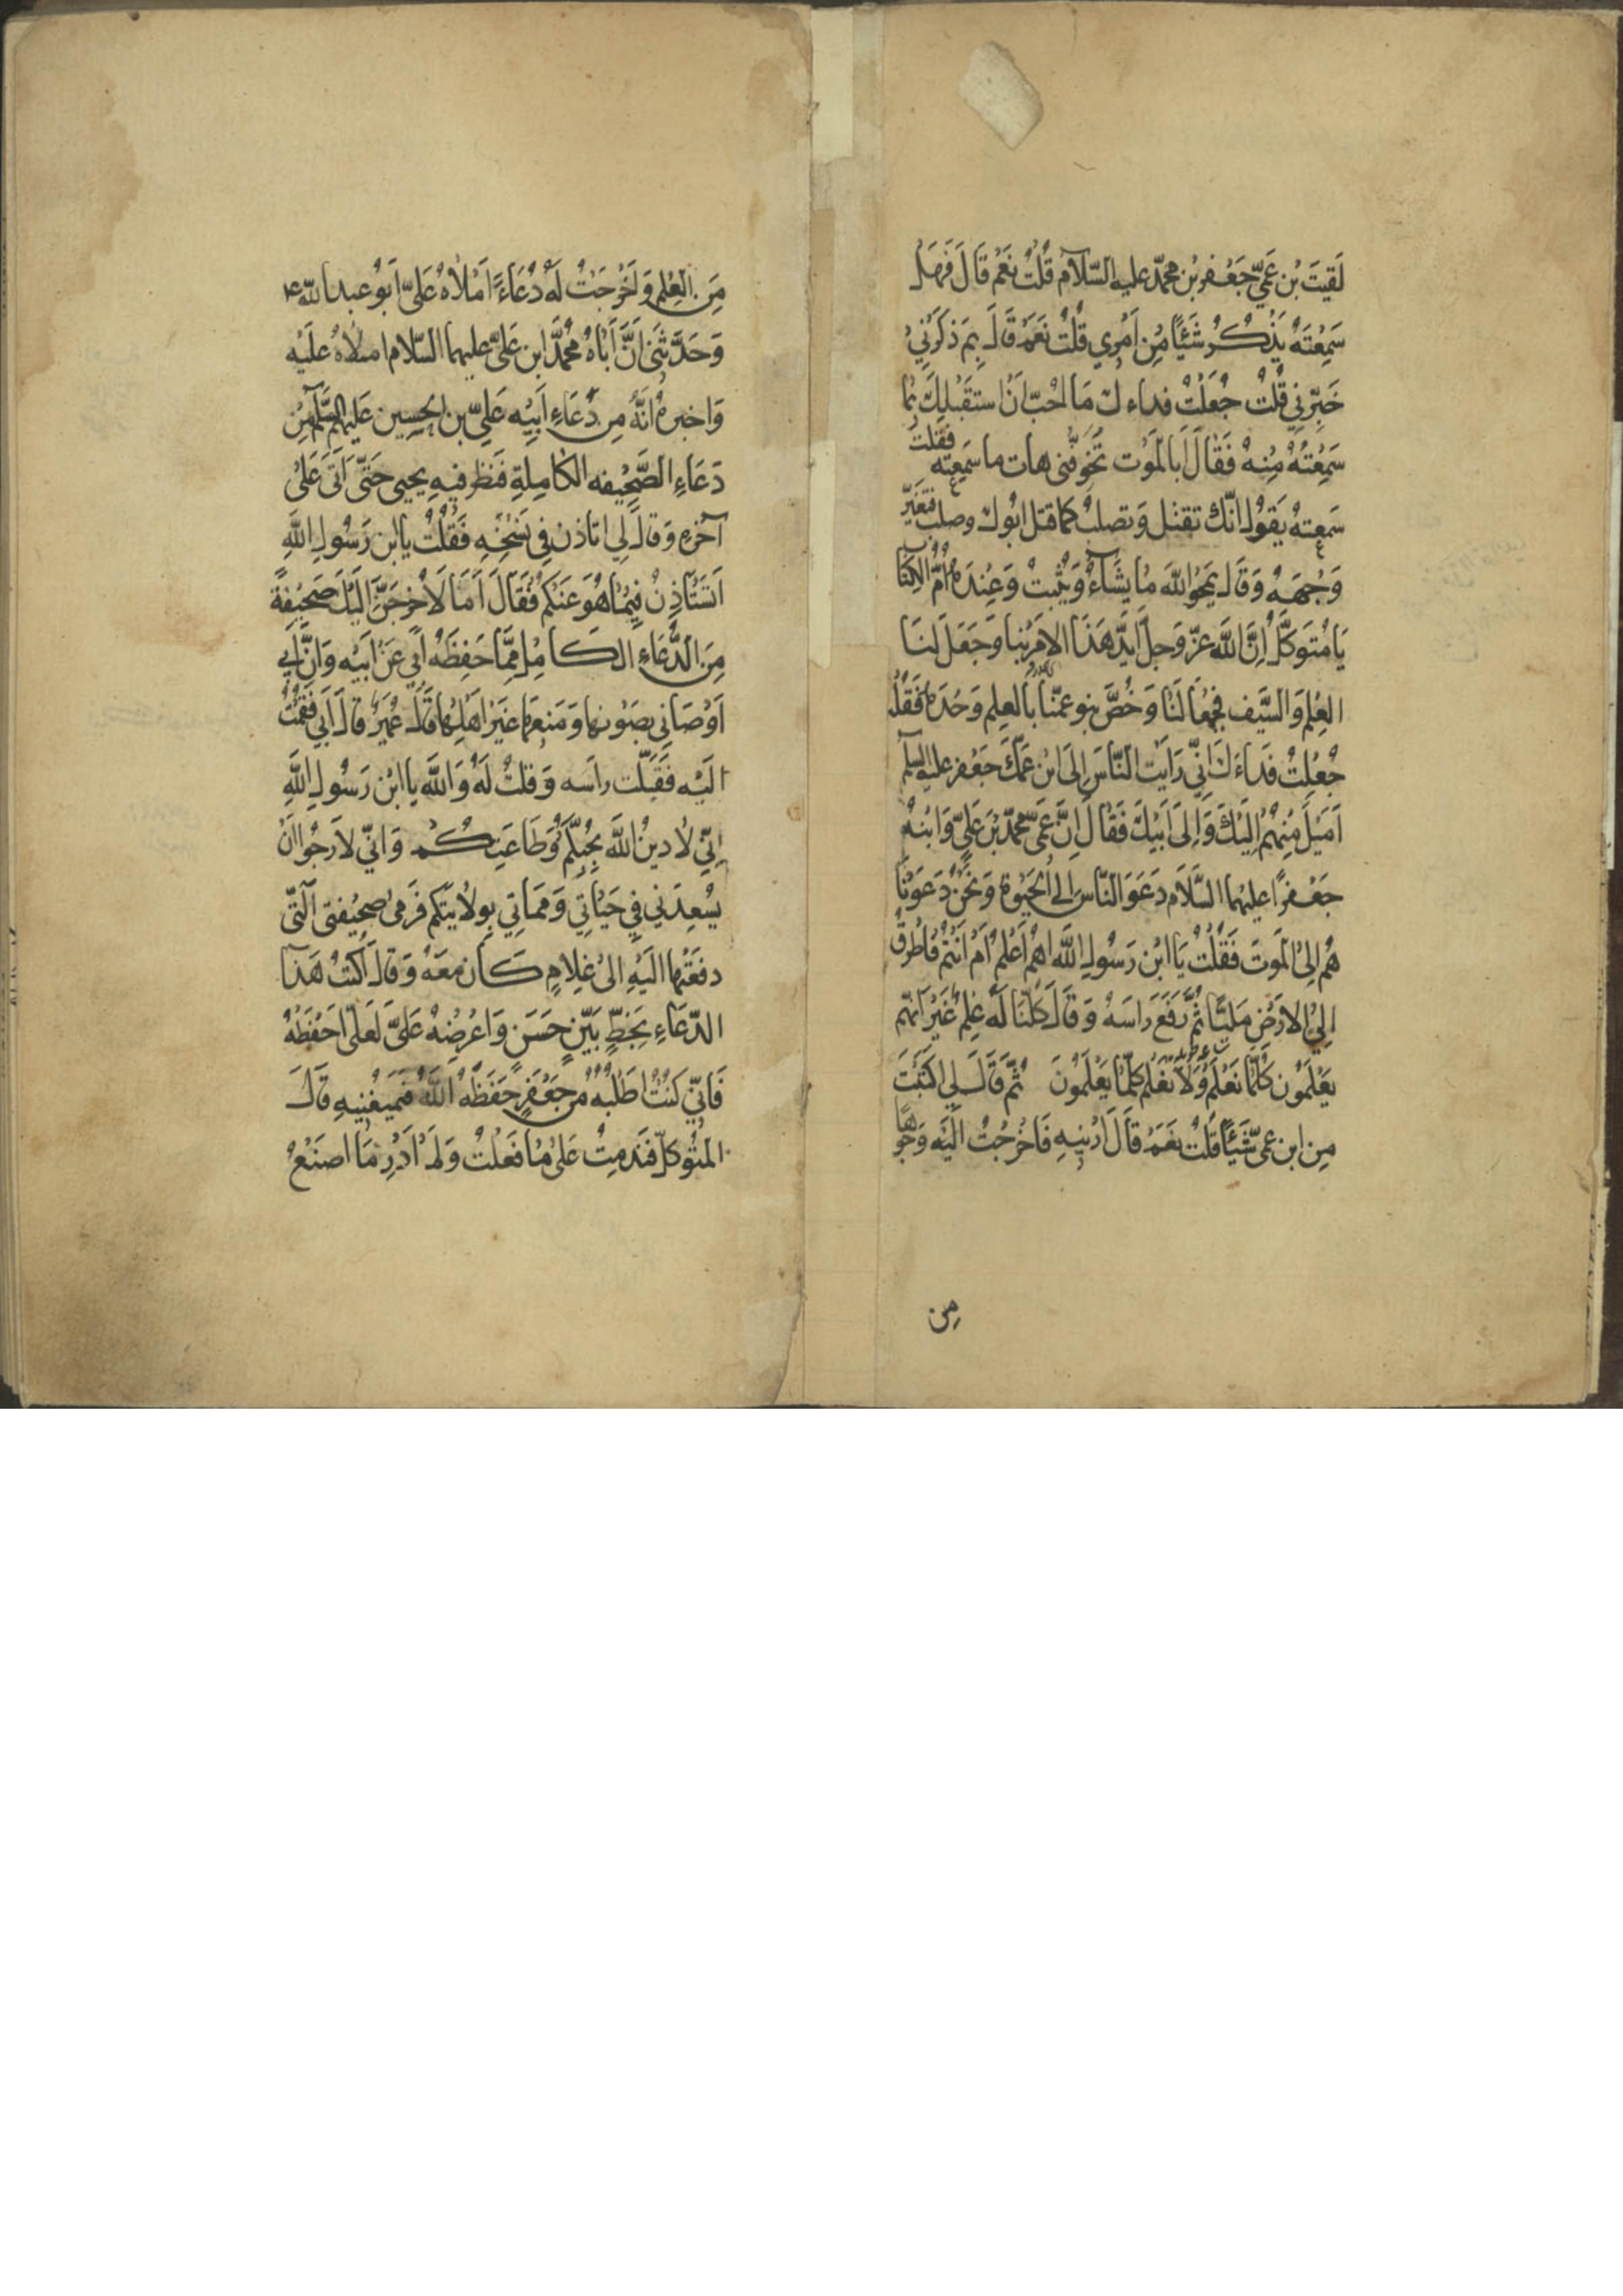 لَقِيتَ بْن عَمِّي جَعْفَر بْن محمّد عليه السّلام قُلْتُ نَعَمْ قَالَ فَهَلْ
سَمِعْتَهُ يَذْكُرُ شَيْئًا مِن اَمْرِي قُلْتُ نَعَمْ قَالَ بِمَ ذَكَرَنِي
خَبِّرْنِي قُلْتُ جُعِلْتُ فداءك مَا اُحبّ اَنْ استقبلك بِمَا
سَمِعْتُهُ مِنْهُ فَقَالَ اَبِالمَوْتِ تُخَوِّفُنِي هات ما سَمِعته فَقُلْتُ
سَمِعته يَقُولُ انّك تقتل وَتصلب كما قتل ابوك وصلب فَتَغَيَّرَ
وَجْهَهُ وَقَالَ يَمْحُو اللّٰهُ مَا يَشَآءُ وَيُثْبِتُ وَعِنْدَهُ اُمُّ الْكِتَاب
يَا مُتَوَكّل اِنَّ اللّٰهَ عَزّ وَجلّ اَيّدَ هَذَا الامرَ بِنَا وَجَعَلَ لَنَا
العِلْمَ وَالسَّيْف فجُمِعَا لَنَا وَخُصَّ بنو عمّنا بِالعِلم وَحْدَهُ فَقُلْتُ
جُعِلْتُ فداءَكَ اِنِّي رَاَيْت النَّاسَ اِلَى ابْن عَمِّكَ جَعْفر عليه السلم
اَمْيَلَ مِنْهُمْ اِلَيْكَ وَاِلَى اَبِيكَ فَقَالَ اِنَّ عَمِّي محمّد بْنَ عَلِيّ وَابْنَهُ
جَعْفرًا عليهما السَّلَام دَعَوَا النّاس الى الحَيٰوة وَنَحْنُ دَعَوْنَا
هُمْ اِلىٰ المَوت فَقُلْتُ يَا ابْن رَسُولِ اللّٰهِ اَهُمْ اَعْلَمُ اَمْ اَنْتُمْ فَاَطْرَقَ
اِلىٰ الارْضِ مَليًّا ثُمَّ رَفَعَ رَاسَهُ وَقَالَ كُلّنَا لَهُ عِلْمٌ غَيْرَ اَنّهم
يَعْلَمُون كُلّمَا نَعْلَمُ وَلَا نَعْلَم كلّمَا يَعْلَمُونَ ثُمَّ قَالَ لِي اكَتَبْتَ
مِن ابن عمّي شَيْئًا قُلْتُ نَعَمْ قَالَ اَرِنِيهِ فَاَخْرَجْتُ اِلَيْهِ وُجُوهًا
مِن
مِنَ العِلْمِ وَاَخْرَجْتُ لَهُ دُعَاءً اَمْلاهُ عَلَيَّ اَبُو عبد اللّٰه ع
وَحَدَّثَنِي اَنَّ اَبَاهُ محمّد ابن عَلِيّ عليهما السّلام املاهُ عَلَيْهِ
وَاخبرهُ انّهُ مِن دُعَاءِ اَبِيهِ عَلِيّ بن الحسين عَلَيْهِم السَّلَم مِنْ
دعَاءِ الصَّحِيْفه الكَامِلةِ فَنَظر فيهِ يحيى حَتّٰى اَتَى عَلٰى
آخرِهِ وَقَالَ لِي اتاذن فِي نَسْخِهِ فَقُلْتُ يا ابن رَسُولِ اللّٰهِ
اَتَسْتَاْذِنُ فِيْمَا هُوَ عَنْكُمْ فَقَالَ اَمَا لَاُخْرِجَنَّ اِلَيْكَ صَحِيْفَةً
مِنَ الدُّعَاءِ الكَامِل مِمَّا حَفِظَهُ اَبِي عَنْ اَبِيْهِ وَاِنَّ اَبِي
اَوْصَانِي بِصَوْنِهَا وَمَنعِهَا غَيْرَ اَهْلِهَا قَالَ عُمَيْر قَالَ اَبِي فَقُمْتُ
الَيْهِ فَقَبَّلت راسَه وَقلتُ لَهُ وَاللّٰهِ يَا ابْن رَسُولِ اللّٰهِ
اِنّي لَادينُ اللّٰهَ بِحُبِّكُم وَطَاعَتِكُمْ وَاِنّي لاَرجُو اَنْ
يُسْعِدَنِي فِي حَيَاتِي وَمَمَاتِي بِولايَتِكم فَرَمٰى صَحِيْفتِي الّتِي
دفعْتُها اليْهِ الىٰ غلامٍ كَانَ مَعَهُ وَقَالَ اكتبْ هَذَا
الدّعَاءِ بِخَطٍّ بَيّنٍ حَسَنٍ وَاعْرضْهُ عَلَيَّ لَعَلِّي احْفَظُهُ
فَاِنّي كُنْتُ اطْلُبُهُ مِنْ جَعْفَرٍ حَفَظَهُ اللّٰهُ فَيَمْنَعْنِيهِ قَالَ
المُتَوكّل فَنَدمتُ عَلٰى مَا فَعَلْتُ وَلَمْ اَدْرِ مَا اصنَعُ